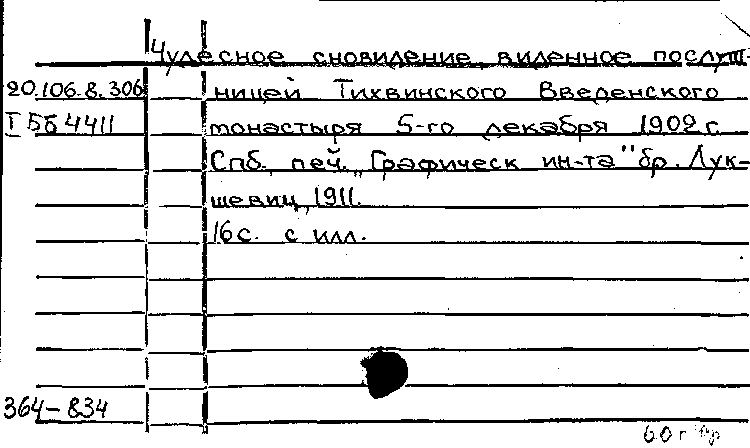 Чудесное сновидение, виденное послуш-
20.106.8.306 ницей Тихвинского Введенского
I Бб 4411 монастыря 5-го декабря 1902 г.
Спб, печ. "Графическ ин-та" бр. Лук-
шевиц, 1911.
16 с. с илл.
364-834
60 г